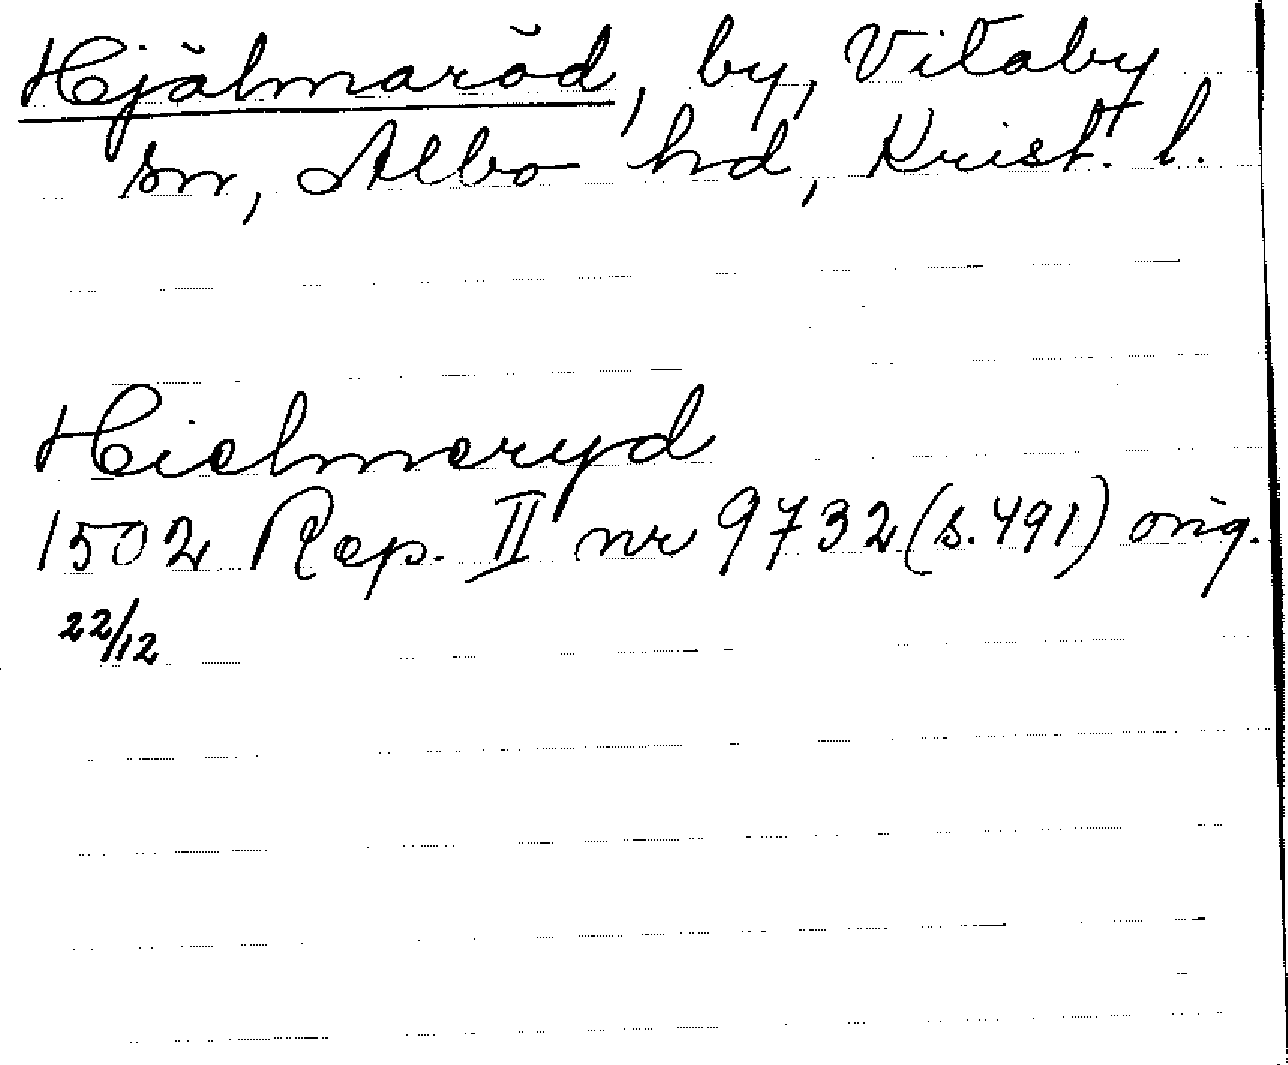 Hjälmaröd, by, Vitaby
sn, Albo hd, Krist. l.
Hielmeryd
1502 Rep. II nr 9732 (s. 491) orig.
22/12